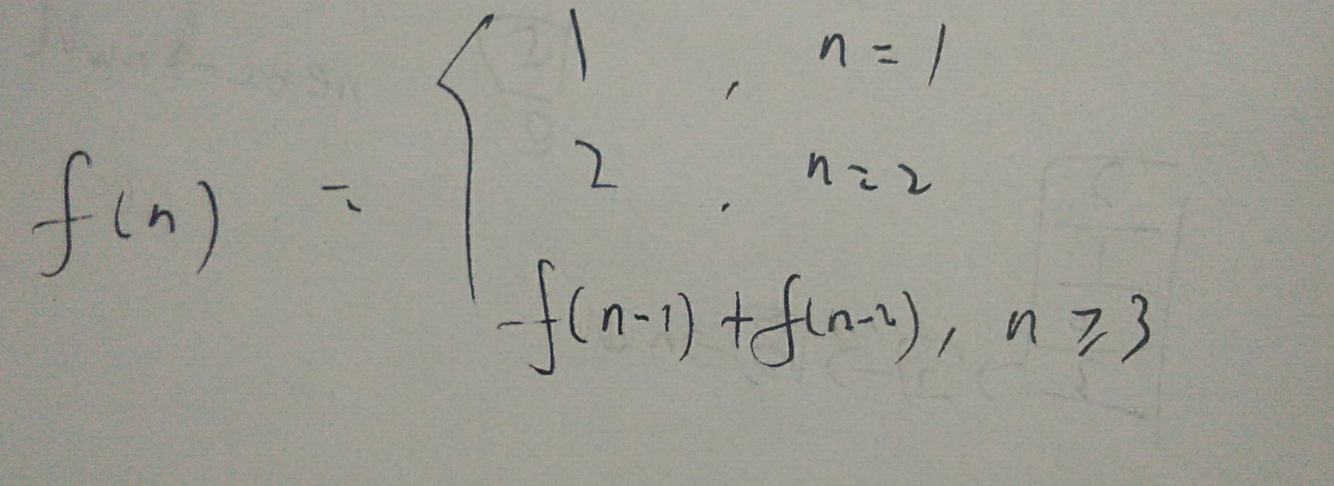 1 , n = 1
f(n) = { 2 , n = 2
f(n-1) + f(n-2), n ⩾ 3